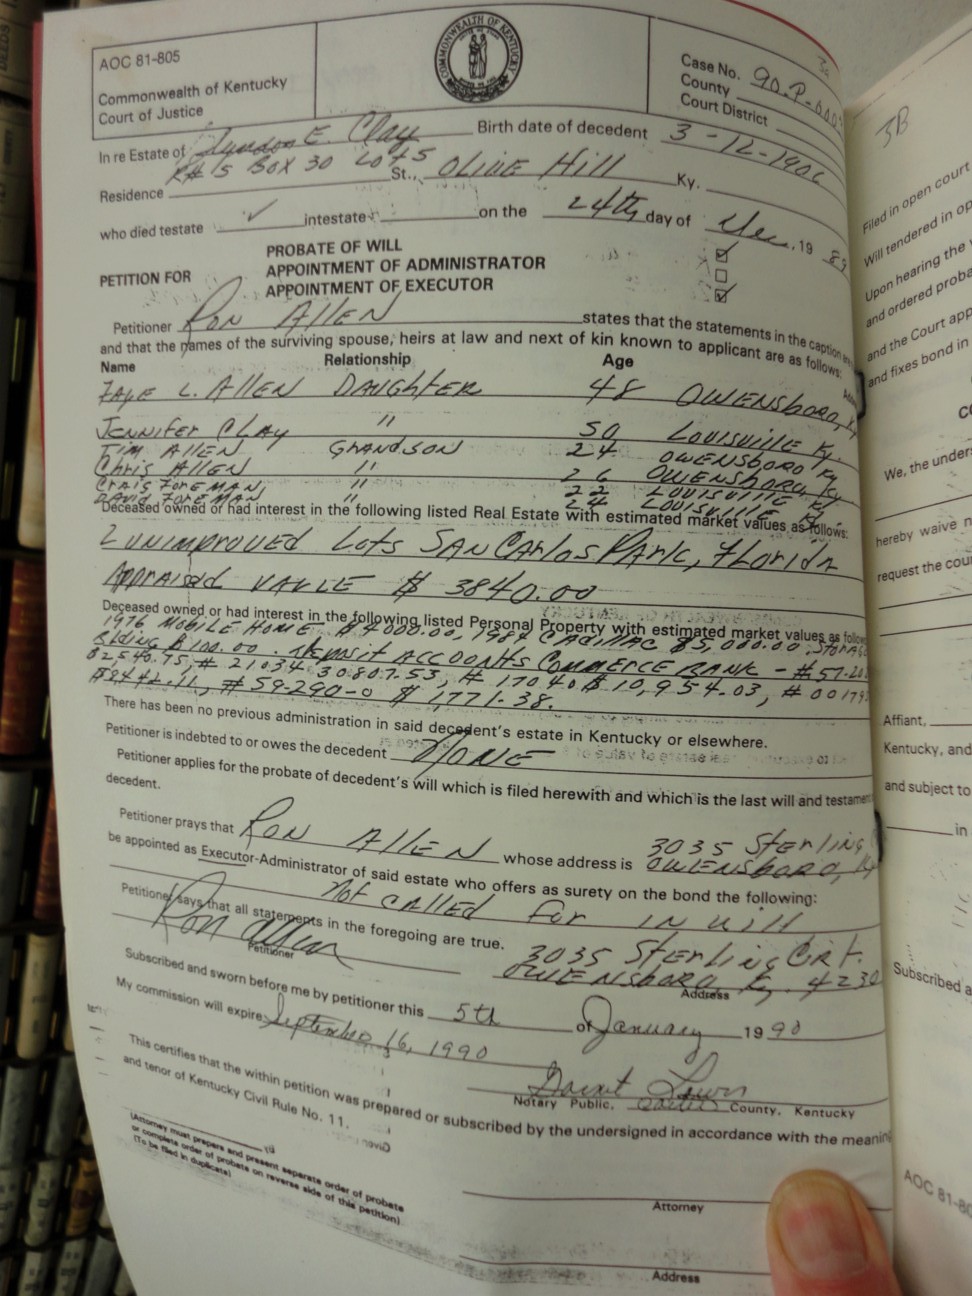 AOC 81-805
Commonwealth of Kentucky
Court of Justice
COMMONWEALTH OF KENTUCKY
Case No. 90-P-000
County
Court District
3B
In re Estate of E. Clay Birth date of decedent 3-12-190
R# 5 Box 30 Lot 5
Residence St., Olive Hill Ky.
who died testate ✓ intestate on the 24th day of Dec, 19 89
PETITION FOR
PROBATE OF WILL
APPOINTMENT OF ADMINISTRATOR
APPOINTMENT OF EXECUTOR
Petitioner Ron Allen states that the statements in the caption
and that the names of the surviving spouse, heirs at law and next of kin known to applicant are as follows:
Name Relationship Age
Faye L. Allen Daughter 48 Owensboro, Ky
Jennifer Clay " 50 Louisville Ky.
Tim Allen Grandson 24 Owensboro Ky
Chris Allen " 26 Owensboro, Ky.
Craig Foreman, " 22 Louisville Ky.
David Foreman " 24 Louisville Ky.
Deceased owned or had interest in the following listed Real Estate with estimated market values as follows:
2 unimproved Lots San Carlos Park, Florida
Appraised value $ 3840.00
Deceased owned or had interest in the following listed Personal Property with estimated market values as follow
1976 Mobile Home, $4000.00, 1984 Cadillac $5,000.00, Storage
Blding $100.00. Deposit Accounts Commerce Bank - #57-20
$2,540.75, # 21034 30807.53, # 17040 $10,954.03, # 00179
$8442.11, #59-290-0 $1,771.38.
There has been no previous administration in said decedent's estate in Kentucky or elsewhere.
Petitioner is indebted to or owes the decedent None
Petitioner applies for the probate of decedent's will which is filed herewith and which is the last will and testament
decedent.
Petitioner prays that Ron Allen whose address is 3035 Sterling
Owensboro, Ky
be appointed as Executor-Administrator of said estate who offers as surety on the bond the following:
Not called for in will
Petitioner says that all statements in the foregoing are true.
Ron Allen
Petitioner
3035 Sterling Crt.
Owensboro Ky. 4230
Address
Subscribed and sworn before me by petitioner this 5th of January 19 90
My commission will expire September 16, 1990
Notary Public, Carter County, Kentucky
This certifies that the within petition was prepared or subscribed by the undersigned in accordance with the meanin
and tenor of Kentucky Civil Rule No. 11.
(Attorney must prepare and present separate order of probate
or complete order of probate on reverse side of this petition)
(To be filed in duplicate)
Attorney
Address
Filed in open court
Will tendered in op
Upon hearing the
and ordered proba
and the Court app
and fixes bond in
CO
We, the unders
hereby waive n
request the cou
Affiant,
Kentucky, and
and subject to
in
Subscribed a
AOC 81-80